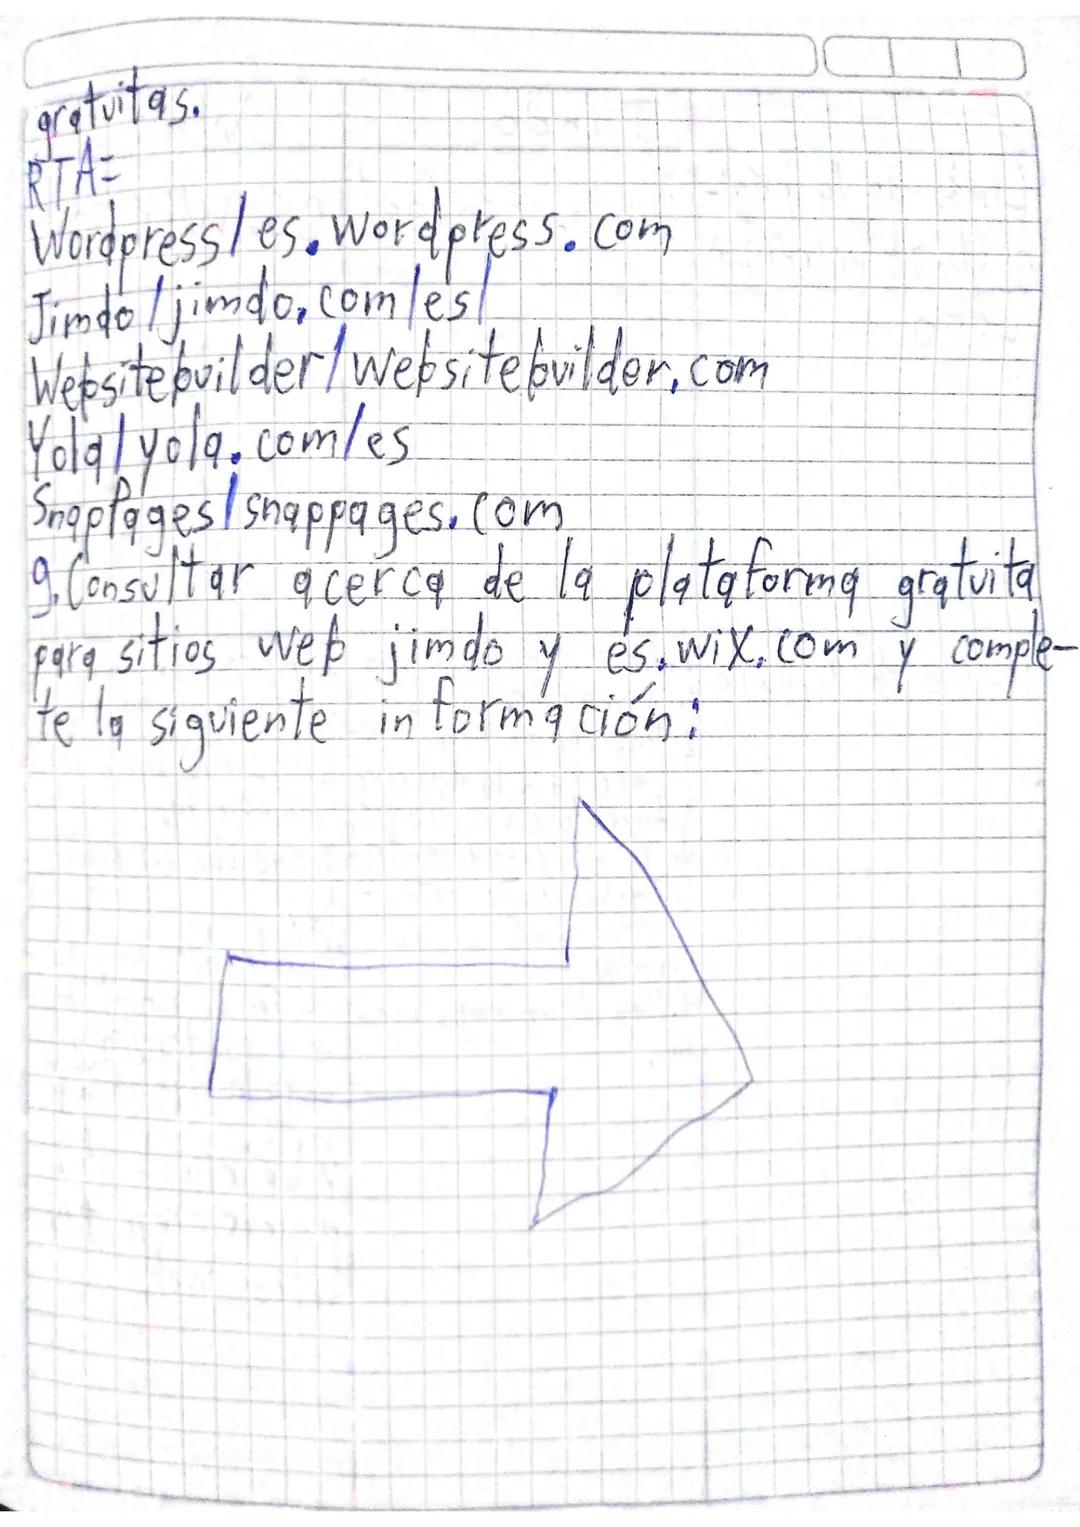 gratuitas.
RTA=
Wordpress/es.wordpress.com
Jimdo/jimdo.com/es/
Websitebuilder/websitebuilder.com
Yola/yola.com/es
SnapPages/snappages.com
9.Consultar acerca de la plataforma gratuita
para sitios web jimdo y es.wix.com y comple-
te la siguiente información: